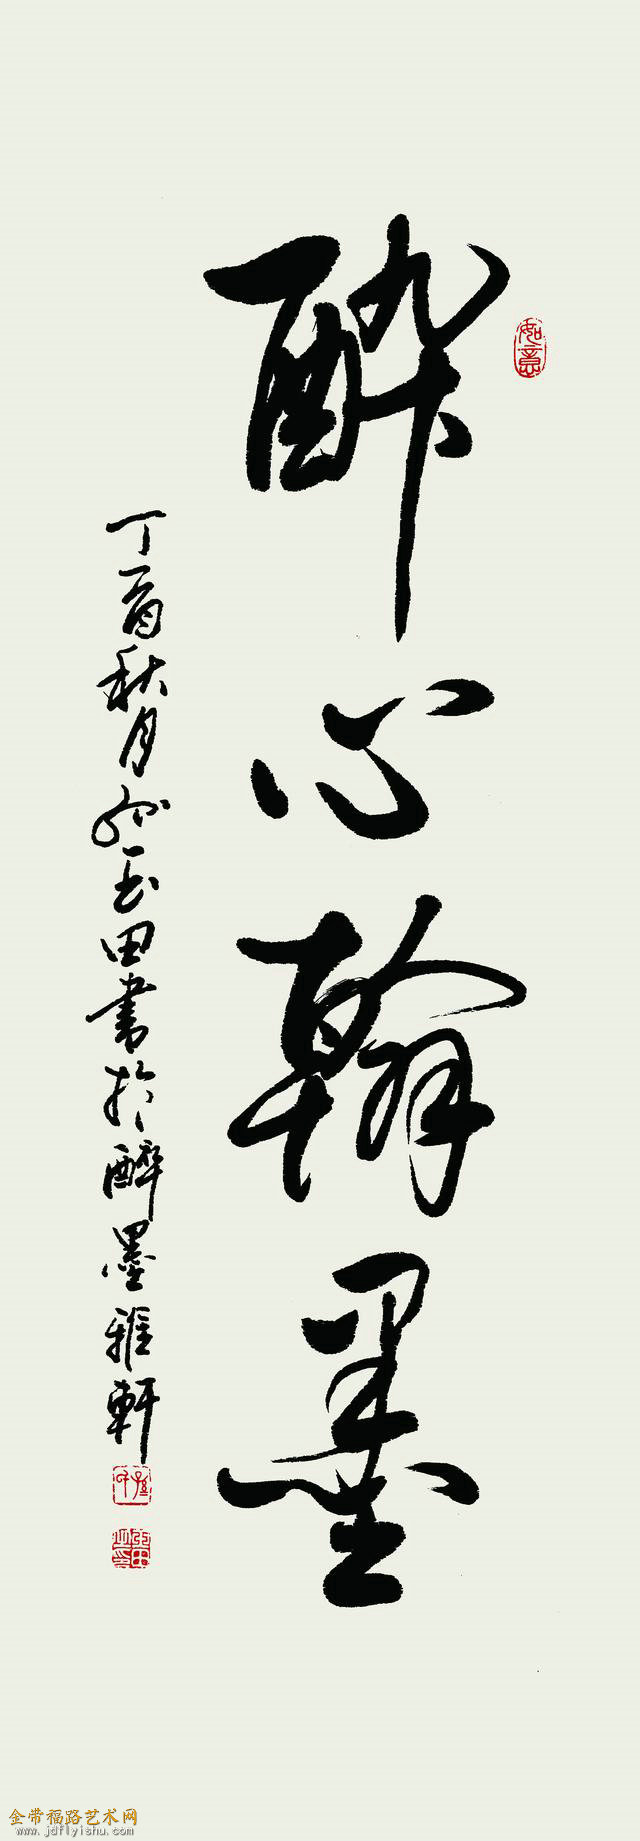 醉心翰墨
如意
丁酉秋月孙玉田書於醉墨雅軒
金带福路艺术网
www.jdflyishu.com